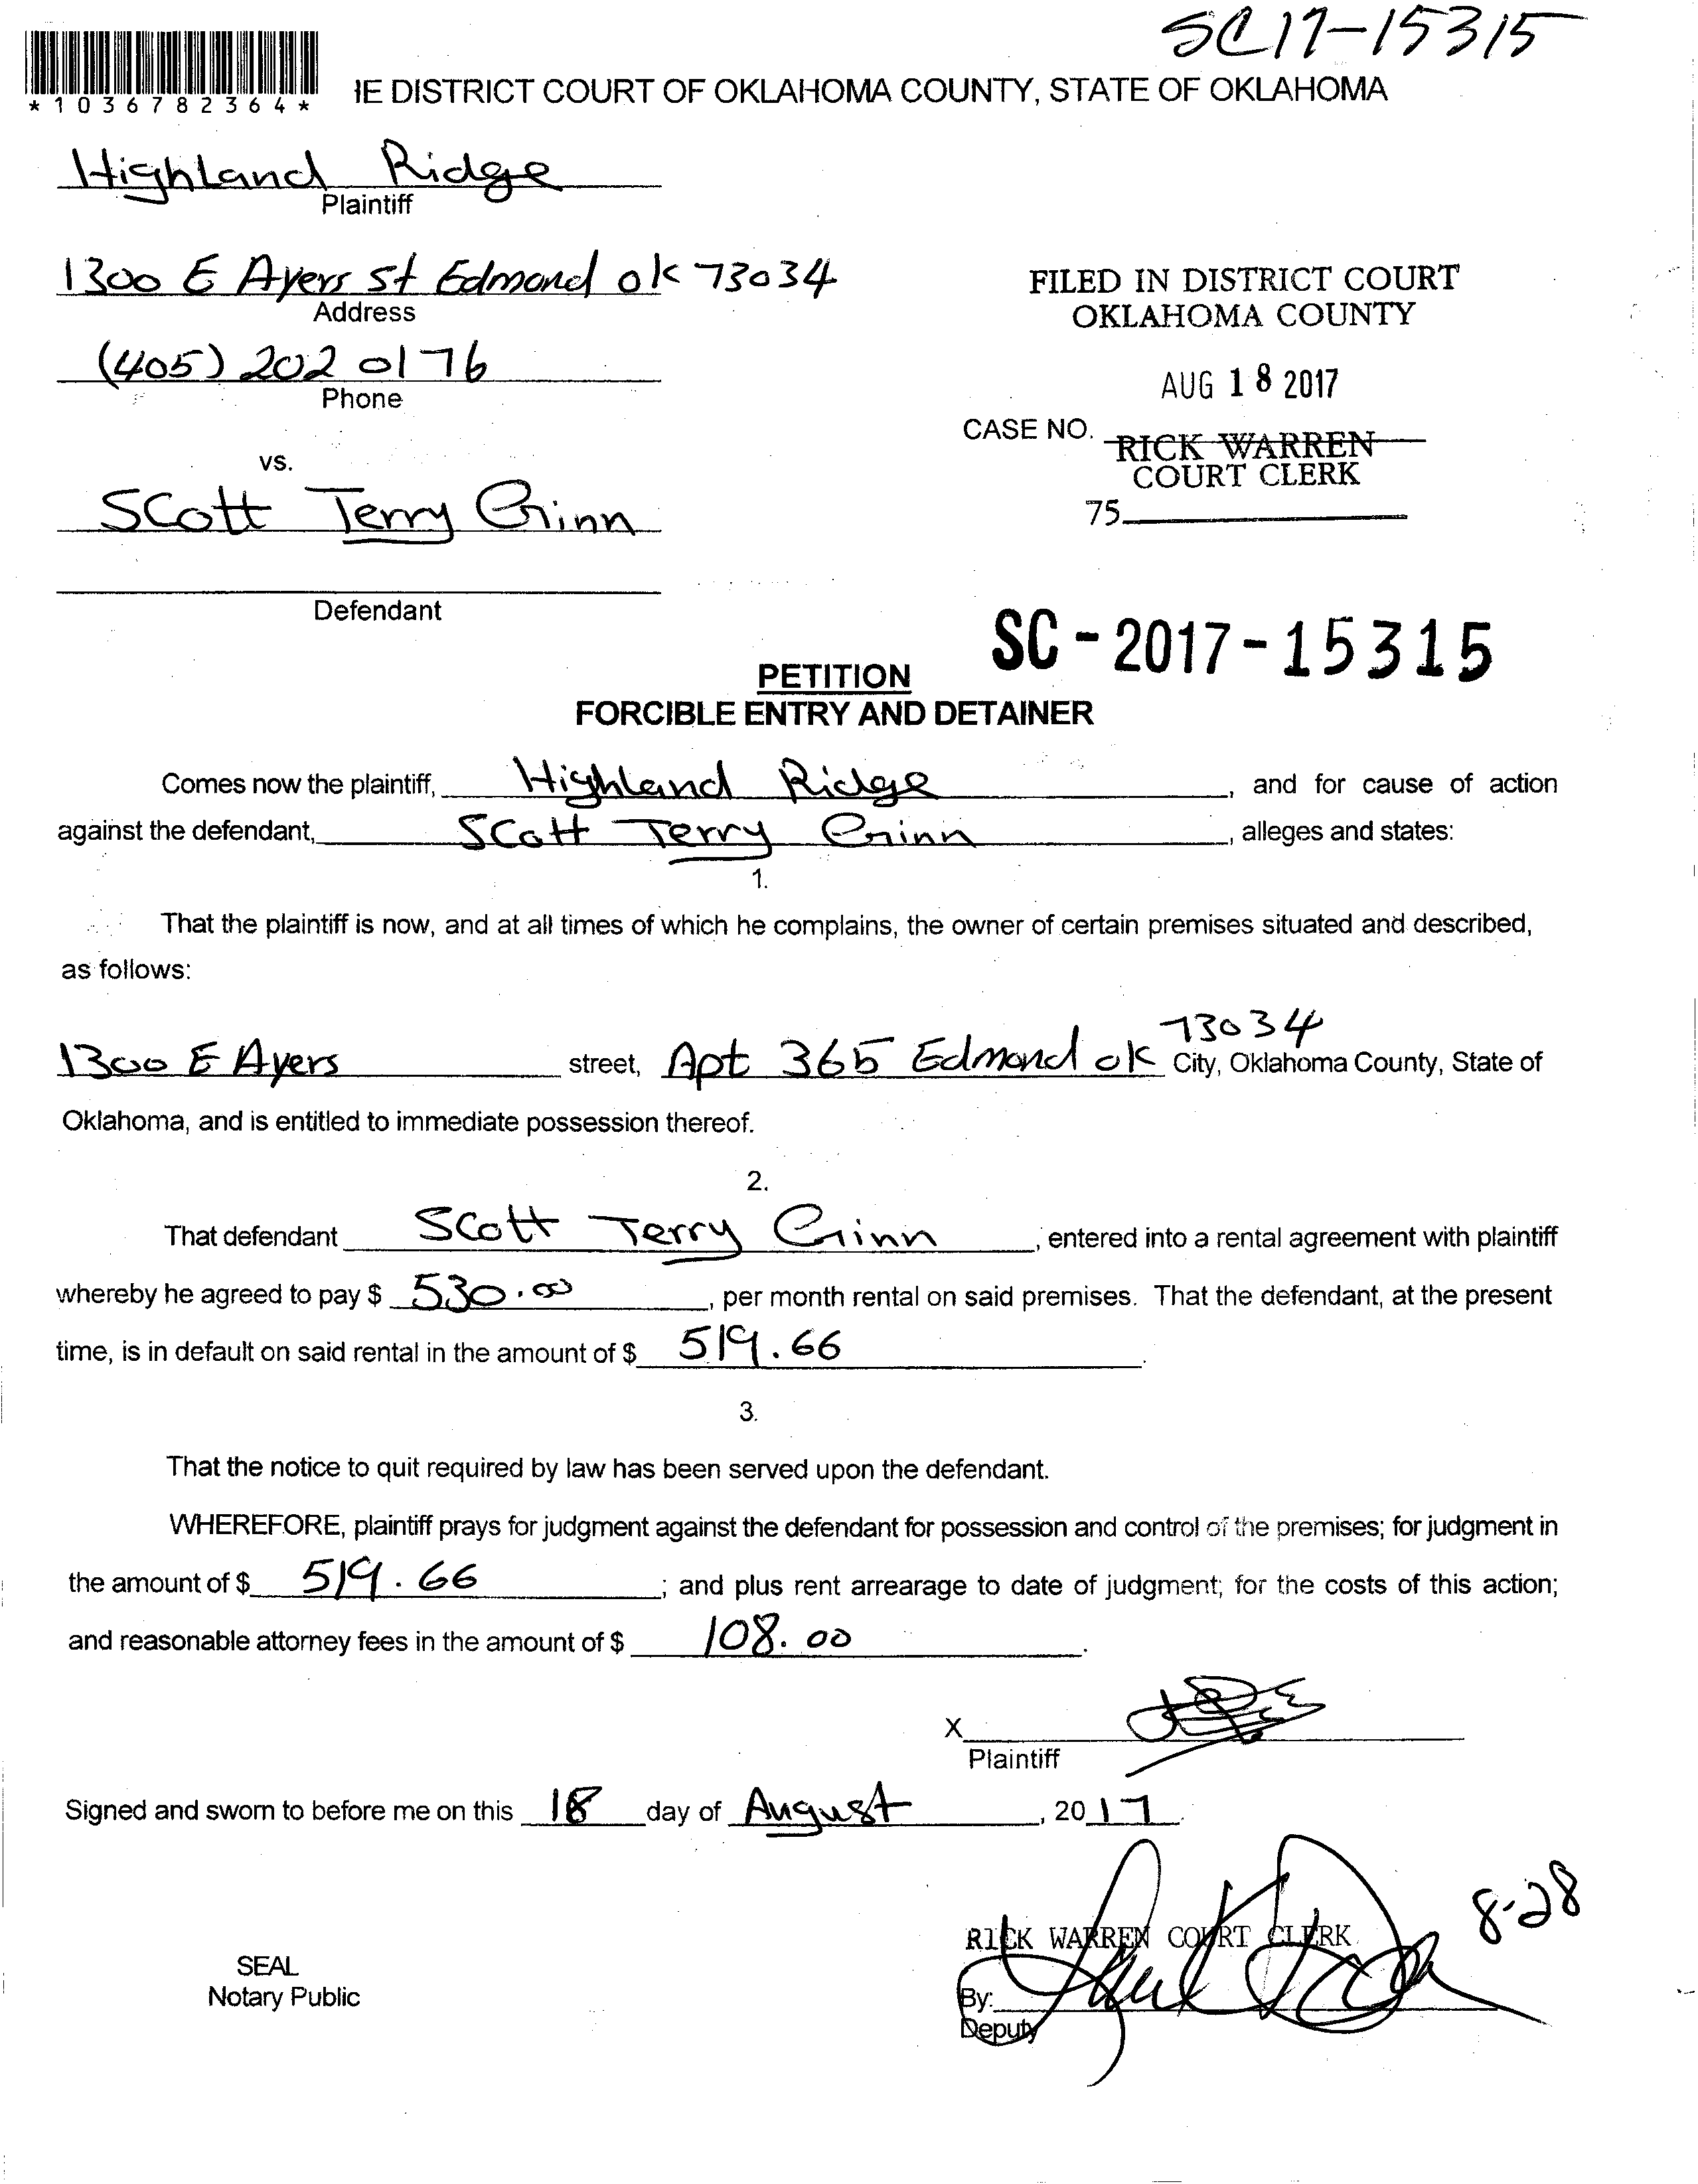 SC17-15315
*1036782364*
IE DISTRICT COURT OF OKLAHOMA COUNTY, STATE OF OKLAHOMA
Highland Ridge
Plaintiff
1300 E Ayers St Edmond ok 73034
Address
(405) 202 0176
Phone
FILED IN DISTRICT COURT
OKLAHOMA COUNTY
AUG 18 2017
CASE NO.
RICK WARREN
COURT CLERK
75
vs.
Scott Terry Ginn
Defendant
SC-2017-15315
PETITION
FORCIBLE ENTRY AND DETAINER
Comes now the plaintiff, Highland Ridge, and for cause of action
against the defendant, Scott Terry Ginn, alleges and states:
1.
That the plaintiff is now, and at all times of which he complains, the owner of certain premises situated and described,
as follows:
73034
1300 E Ayers street, Apt 365 Edmond ok City, Oklahoma County, State of
Oklahoma, and is entitled to immediate possession thereof.
2.
That defendant Scott Terry Ginn, entered into a rental agreement with plaintiff
whereby he agreed to pay $ 530.00, per month rental on said premises. That the defendant, at the present
time, is in default on said rental in the amount of $ 519.66.
3.
That the notice to quit required by law has been served upon the defendant.
WHEREFORE, plaintiff prays for judgment against the defendant for possession and control of the premises; for judgment in
the amount of $ 519.66; and plus rent arrearage to date of judgment; for the costs of this action;
and reasonable attorney fees in the amount of $ 108.00.
X
Plaintiff
Signed and sworn to before me on this 18 day of August, 2017.
8-28
RICK WARREN COURT CLERK
SEAL
Notary Public
By:
Deputy